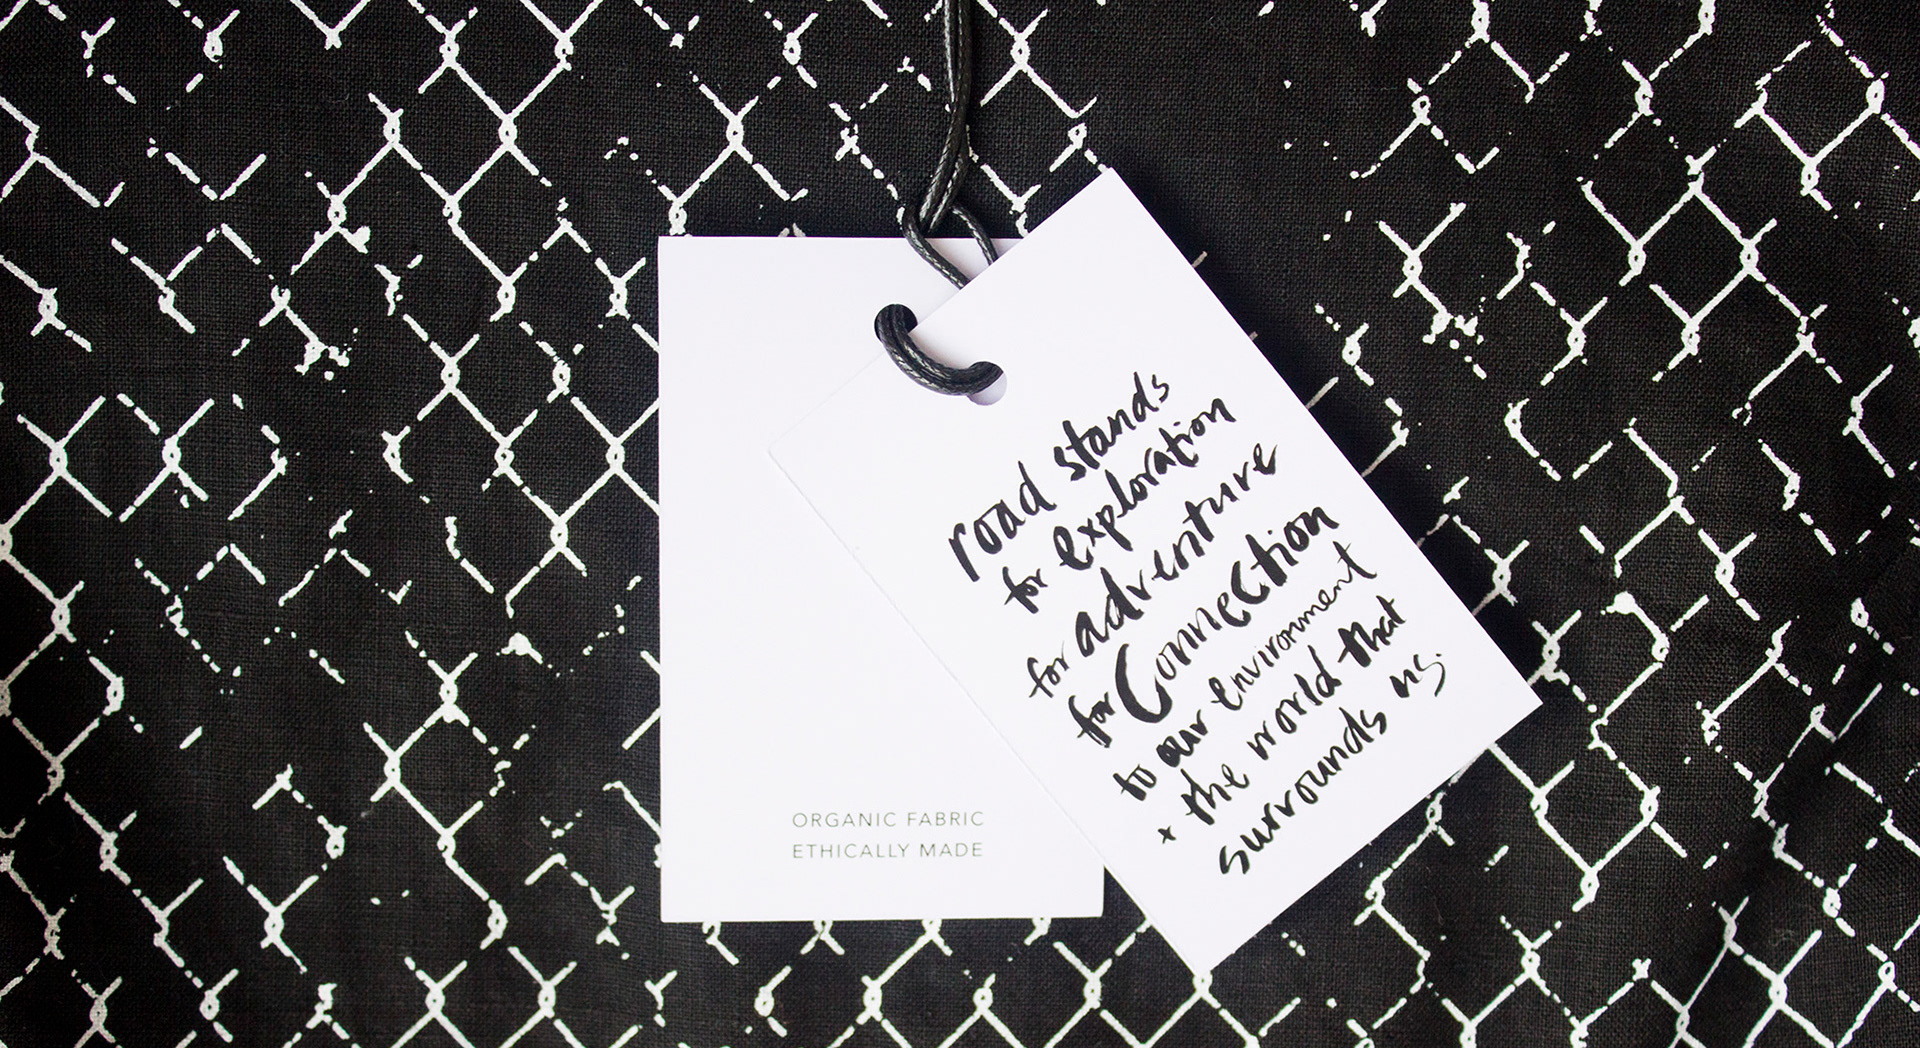 ORGANIC FABRIC
ETHICALLY MADE
road stands
for exploration
for adventure
for Connection
to our environment
+ the world that
surrounds us.